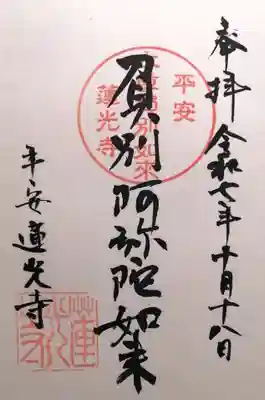 奉拝 令和七年十月十八日
負別阿弥陀如来
平安蓮光寺
平安
蓮光寺